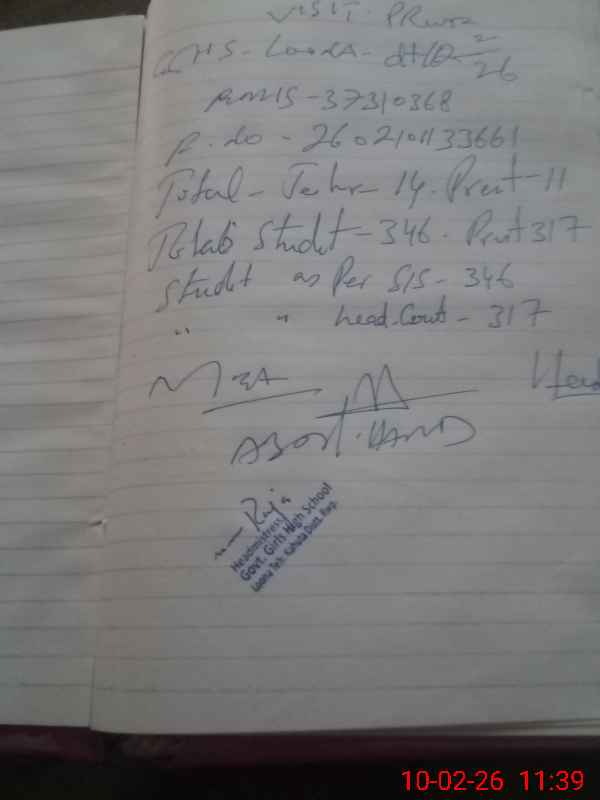 VISIT. 
GHS - Loona - dt 10-2/26
EMIS - 37310368
P. No - 2602101133661
Total - Techr - 14. Presnt - 11
Total Studet - 346. Presnt 317
Studet as Per SIS - 346
" " head-Cout - 317
MEA
Head
Raja
Headmistress
Govt. Girls High School
Loona Teh. Kahuta Distt. Rwp.
10-02-26 11:39